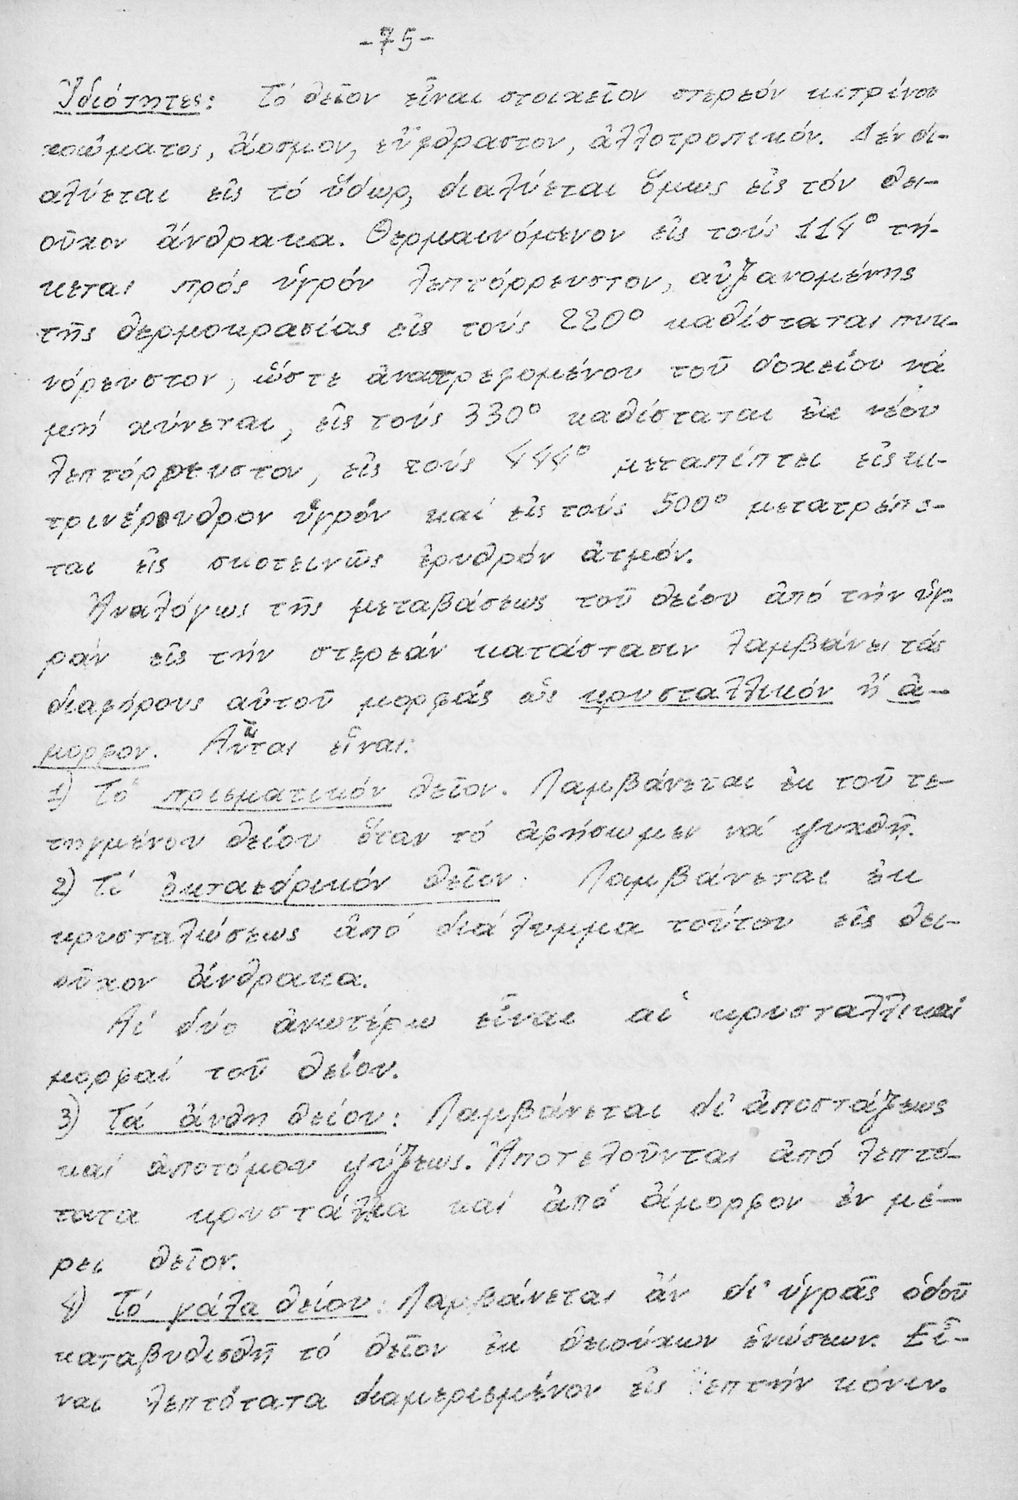 -75-
Ἰδιότητες: Τό θεῖον εἶναι στοιχεῖον στερεόν κιτρίνου
χρώματος, ἄοσμον, εὔθραστον, ἀλλοτροπικόν. Δέν δι-
αλύεται εἰς τό ὕδωρ, διαλύεται ὅμως εἰς τόν θει-
οῦχον ἄνθρακα. Θερμαινόμενον εἰς τούς 114° τή-
κεται πρός ὑγρόν λεπτόρρευστον, αὐξανομένης
τῆς θερμοκρασίας εἰς τούς 220° καθίσταται πυκ-
νόρευστον, ὥστε ἀναστρεφομένου τοῦ δοχείου νά
μή χύνεται, εἰς τούς 330° καθίσταται ἐκ νέου
λεπτόρρευστον, εἰς τούς 444° μεταπίπτει εἰς κι-
τρινέρυθρον ὑγρόν καί εἰς τούς 500° μετατρέπε-
ται εἰς σκοτεινῶς ἐρυθρόν ἀτμόν.
Ἀναλόγως τῆς μεταβάσεως τοῦ θείου ἀπό τήν ὑγ-
ράν εἰς τήν στερεάν κατάστασιν λαμβάνει τάς
διαφόρους αὐτοῦ μορφάς ὡς κρυσταλλικόν ἤ ἄ-
μορφον. Αὗται εἶναι:
1) Τό πρισματικόν θεῖον. Λαμβάνεται ἐκ τοῦ τε-
τηγμένου θείου ὅταν τό ἀφήσωμεν νά ψυχθῇ.
2) Τό ὀκταεδρικόν θεῖον: Λαμβάνεται ἐκ
κρυσταλώσεως ἀπό διάλυμμα τούτου εἰς θει-
οῦχον ἄνθρακα.
Αἱ δύο ἀνωτέρω εἶναι αἱ κρυσταλλικαί
μορφαί τοῦ θείου.
3) Τά ἄνθη θείου: Λαμβάνεται δι' ἀποστάξεως
καί ἀποτόμου ψύξεως. Ἀποτελοῦνται ἀπό λεπτό-
τατα κρυστάλλα καί ἀπό ἄμορφον ἐν μέ-
ρει θεῖον.
4) Τό γάλα θείου: Λαμβάνεται ἄν δι' ὑγρᾶς ὁδοῦ
καταβυθισθῇ τό θεῖον ἐκ θειούχων ἑνώσεων. Εἶ-
ναι λεπτότατα διαμερισμένον εἰς λεπτήν κόνιν.